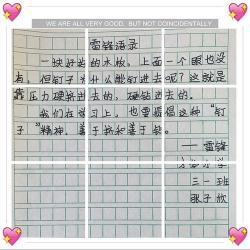 WE ARE ALL VERY GOOD, BUT NOT COINCIDENTALLY
雷锋语录
一块好好的木板，上面一个眼也没
有，但钉子为什么能钉进去呢？这就是
靠压力硬挤进去的，硬钻进去的。
我们在学习上，也要提倡这种“钉
子”精神，善于挤和善于钻。
——雷锋
小学
三一班
张子